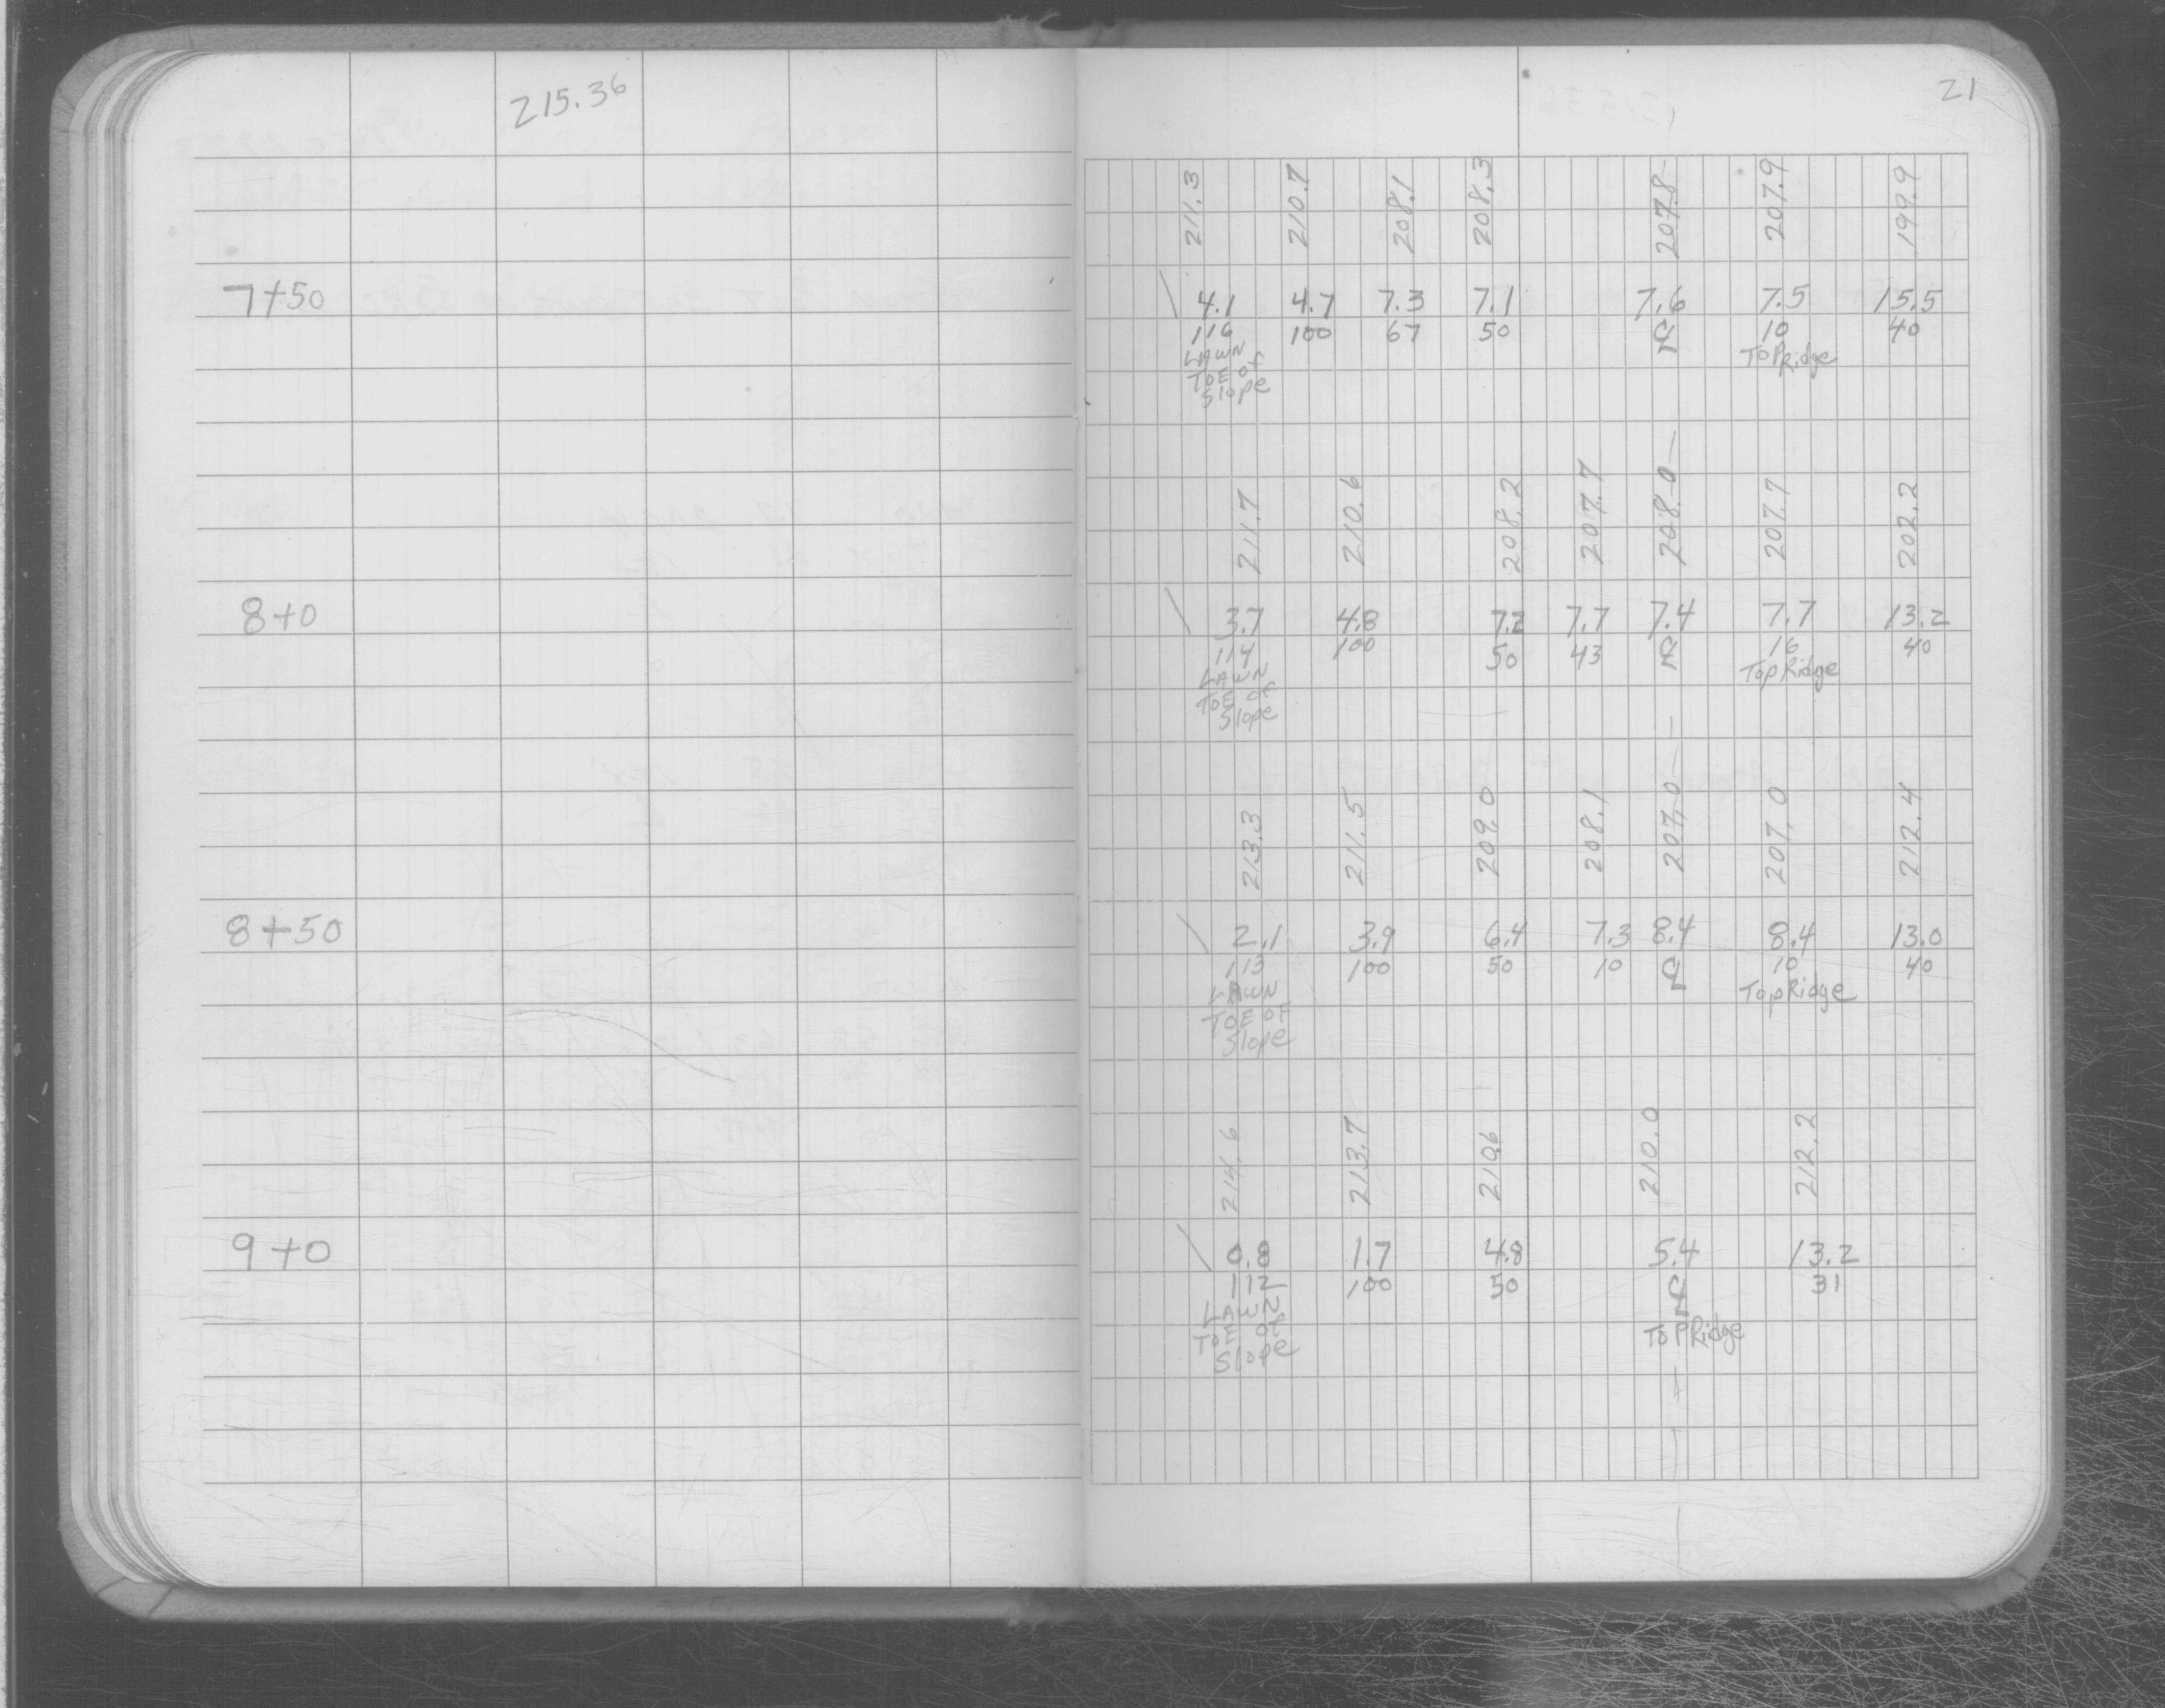 215.36
21
211.3 210.7 208.1 208.3 207.8 207.9 199.9
7+50 4.1 4.7 7.3 7.1 7.6 7.5 15.5
116 100 67 50 ℄ 10 40
LAWN TOP Ridge
TOE OF
Slope
211.7 210.6 208.2 207.7 208.0 207.7 202.2
8+0 3.7 4.8 7.2 7.7 7.4 7.7 13.2
114 100 50 43 ℄ 16 40
LAWN Top Ridge
TOE OF
Slope
213.3 211.5 209.0 208.1 207.0 207.0 212.4
8+50 2.1 3.9 6.4 7.3 8.4 8.4 13.0
113 100 50 10 ℄ 10 40
LAWN Top Ridge
TOE OF
Slope
214.6 213.7 210.6 210.0 212.2
9+0 0.8 1.7 4.8 5.4 13.2
112 100 50 ℄ 31
LAWN
TOE OF TOP Ridge
Slope